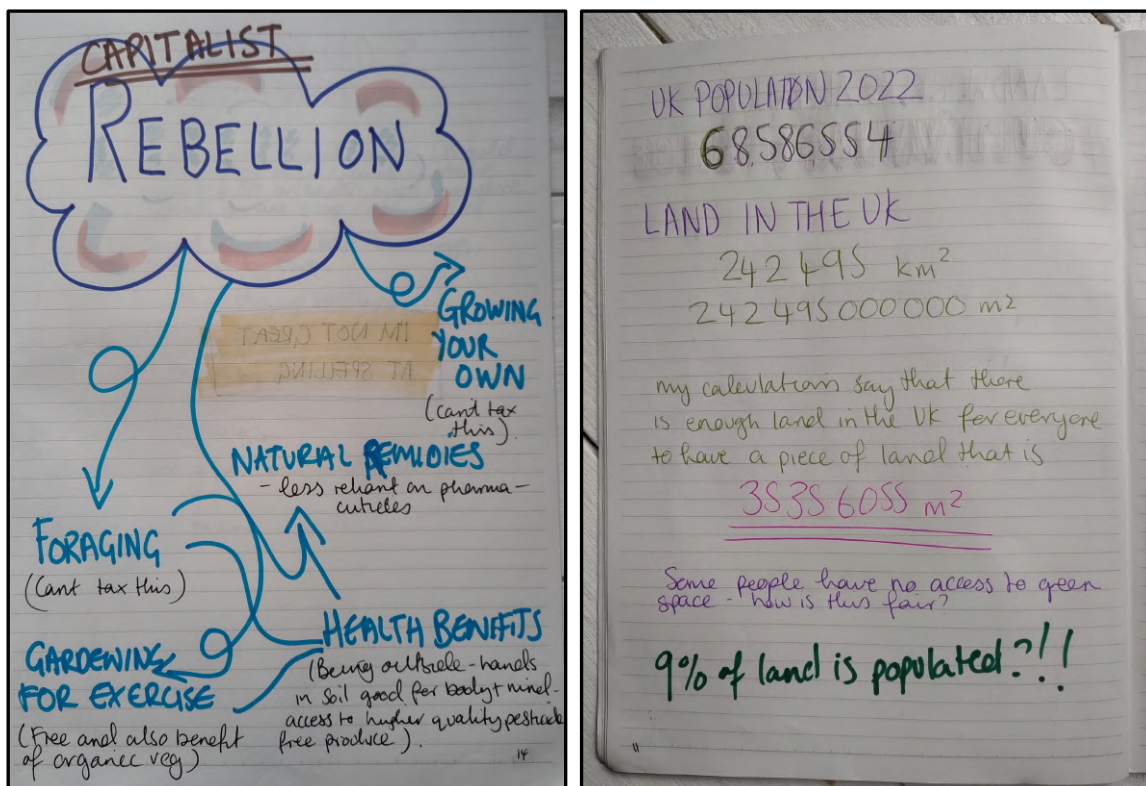 CAPITALIST
REBELLION
GROWING
YOUR
OWN
(can't tax
this).
I'M NOT GREAT
AT SPELLING
NATURAL REMIDIES
- less reliant on pharma-
cuticles
FORAGING
(Cant tax this)
HEALTH BENEFITS
(Being outside - hands
in soil good for body + mind -
access to higher quality pesticide
free produce).
GARDENING
FOR EXERCISE
(Free and also benefit
of organic veg)
14
UK POPULATION 2022
68586554
LAND IN THE UK
242495 km²
242495000000 m²
my calculations say that there
is enough land in the UK for everyone
to have a piece of land that is
3535.6055 m²
Some people have no access to green
space - how is this fair?
9% of land is populated?!!
11